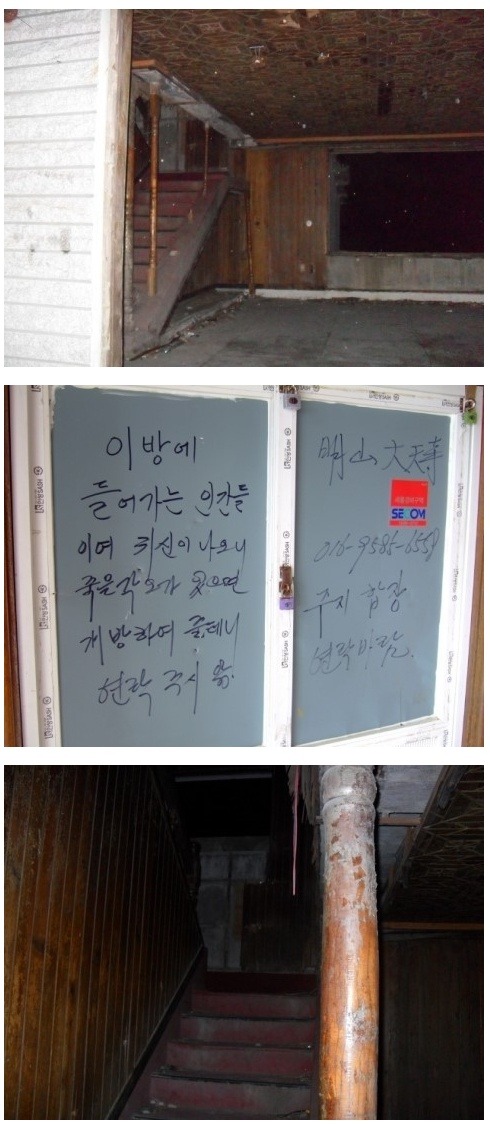 이방에
들어가는 인간들
이여 귀신이 나오니
죽을각오가 있으면
개방하여 줄테니
연락 즉시 옴.
明山 大天寺
SECOM
016-9585-6558
주지 합장
연락바람.